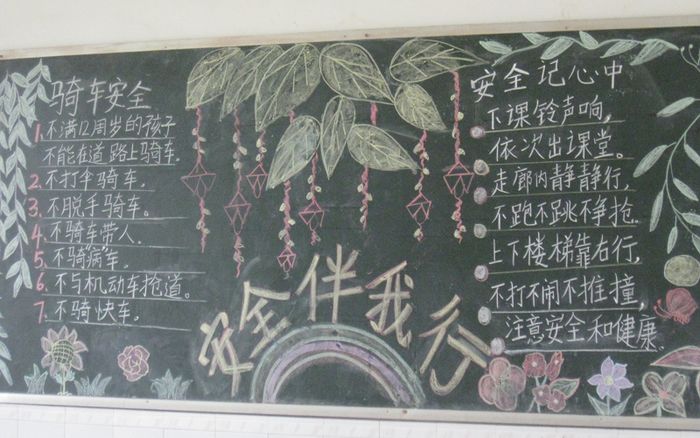 骑车安全
1. 不满12周岁的孩子
不能在道路上骑车.
2. 不打伞骑车.
3. 不脱手骑车。
4. 不骑车带人.
5. 不骑病车.
6. 不与机动车抢道。
7. 不骑快车.
安全伴我行
安全记心中
下课铃声响,
依次出课堂。
走廊内静静行,
不跑不跳不争抢.
上下楼梯靠右行,
不打不闹不推撞,
注意安全和健康.